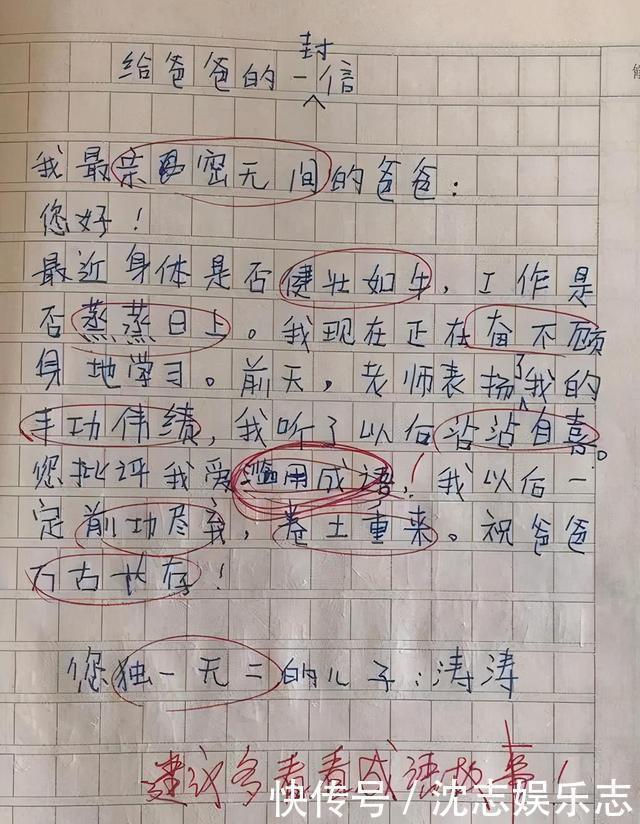 给爸爸的一封信
我最亲密无间的爸爸：
您好！
最近身体是否健壮如牛，工作是
否蒸蒸日上。我现在正在奋不顾
身地学习。前天，老师表扬了我的
丰功伟绩，我听了以后沾沾自喜。
您批评我爱滥用成语！我以后一
定前功尽弃，卷土重来。祝爸爸
万古长存！
您独一无二的儿子：涛涛
建议多看看成语故事！
快传号／沈志娱乐志